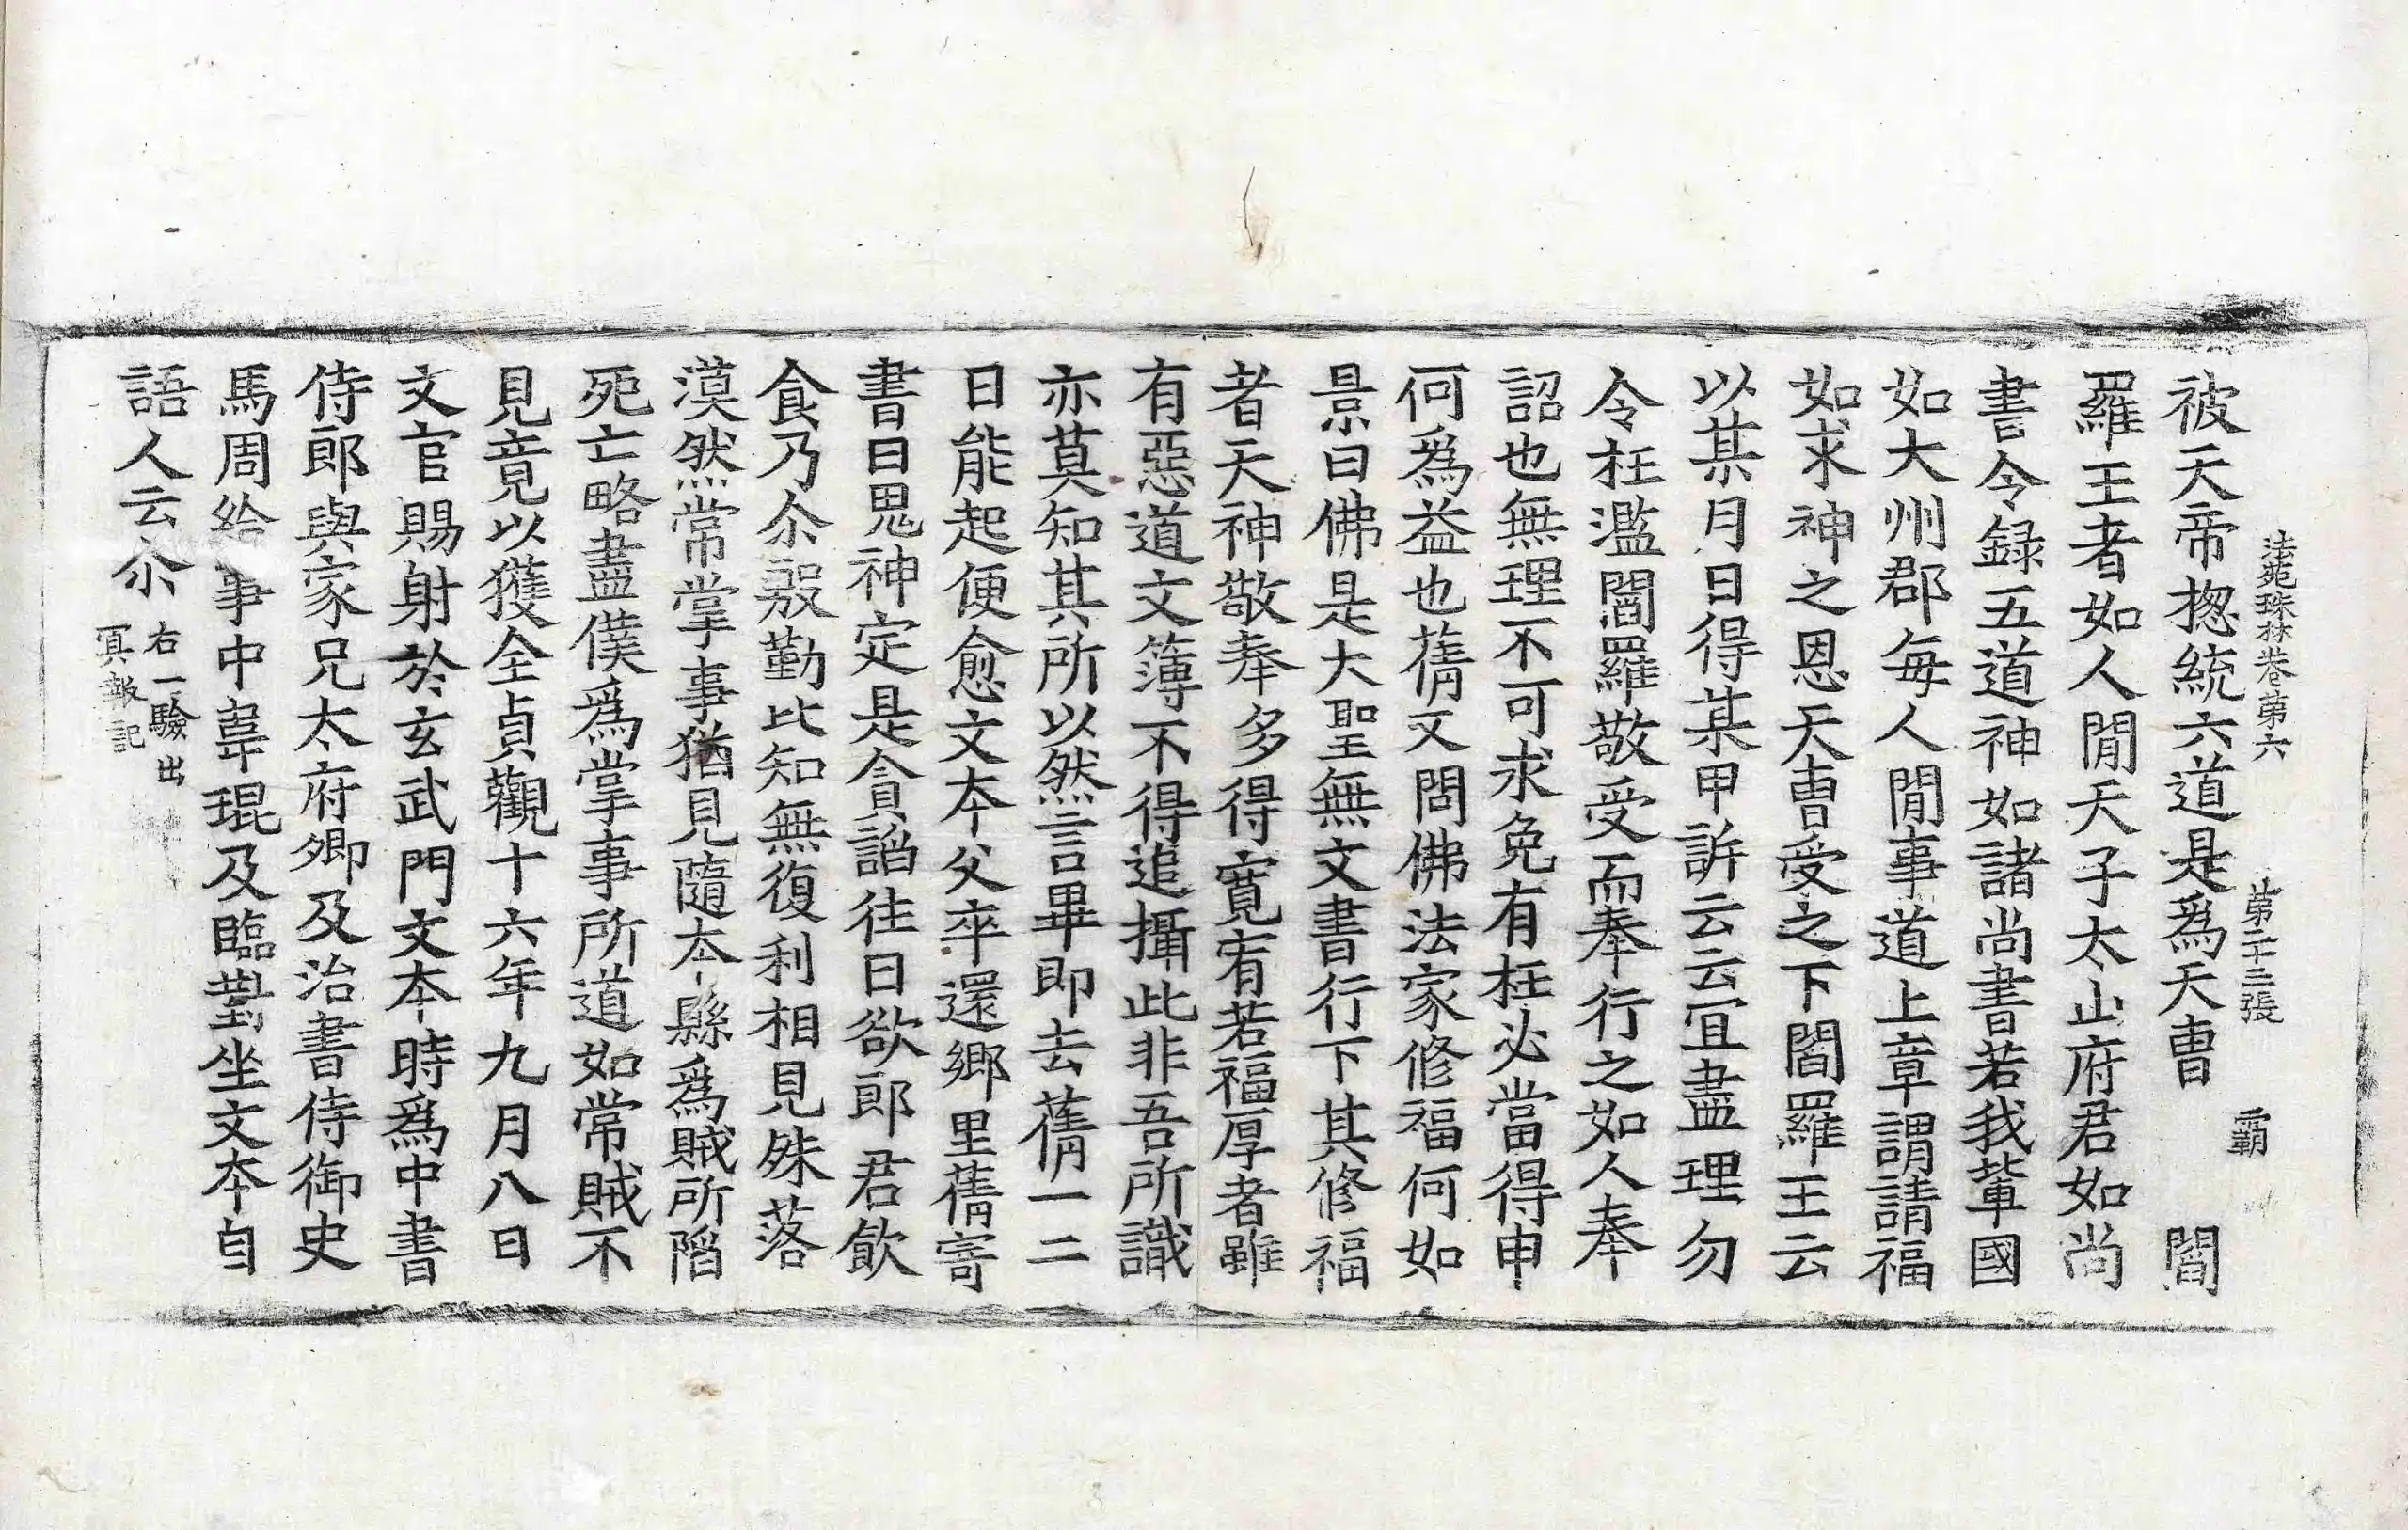 法苑珠林卷第六 第二十三張 霸
被天帝揔統六道是爲天曺 閻
羅王者如人閒天子太山府君如尚
書令録五道神如諸尚書若我輩國
如大州郡每人閒事道上章謂請福
如求神之恩天曺受之下閻羅王云
以某月日得某甲訴云云宜盡理勿
令枉濫閻羅敬受而奉行之如人奉
詔也無理不可求免有枉必當得申
何爲益也蒨又問佛法家修福何如
景曰佛是大聖無文書行下其修福
者天神敬奉多得寬宥若福厚者雖
有惡道文簿不得追攝此非吾所識
亦莫知其所以然言畢即去蒨一二
日能起便愈文夲父卒還鄉里蒨寄
書曰鬼神定是貪謟往日欲郎君飮
食乃尒殷勤比知無復利相見殊落
漠然常掌事猶見隨夲縣爲賊所陷
死亡略盡僕爲掌事所道如常賊不
見竟以獲全貞觀十六年九月八日
文官賜射於玄武門文夲時爲中書
侍郎與家兄太府卿及治書侍御史
馬周給事中韋琨及臨對坐文夲自
語人云尒 右一驗出
冥報記